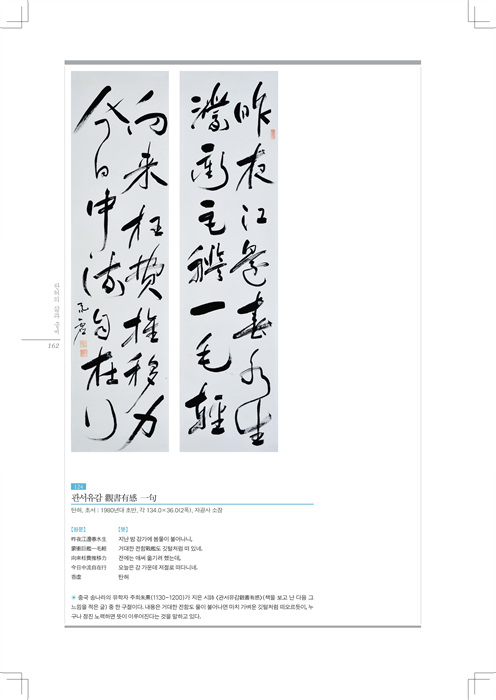 昨夜江邊春水生
濛衝巨艦一毛輕
向来枉費推移力
今日中流自在行
呑虛
탄허의 삶과
162
124
관서유감 觀書有感 一句
탄허, 초서 : 1960년대 초반, 각 134.0×36.0(2폭), 자광사 소장
[원문] [뜻]
昨夜江邊春水生 지난 밤 강가에 봄물이 불어나니,
蒙衝巨艦一毛輕 거대한 전함戰艦도 깃털처럼 떠 있네.
向来枉費推移力 전에는 애써 옮기려 했는데,
今日中流自在行 오늘은 강 가운데 저절로 떠다니네.
呑虛 탄허
중국 송나라의 유학자 주희朱熹(1130~1200)가 지은 시詩 〈관서유감觀書有感〉(책을 보고 난 다음 그
느낌을 적은 글) 중 한 구절이다. 내용은 거대한 전함도 물이 불어나면 마치 가벼운 깃털처럼 떠오르듯이, 누
구나 정진 노력하면 뜻이 이루어진다는 것을 말하고 있다.